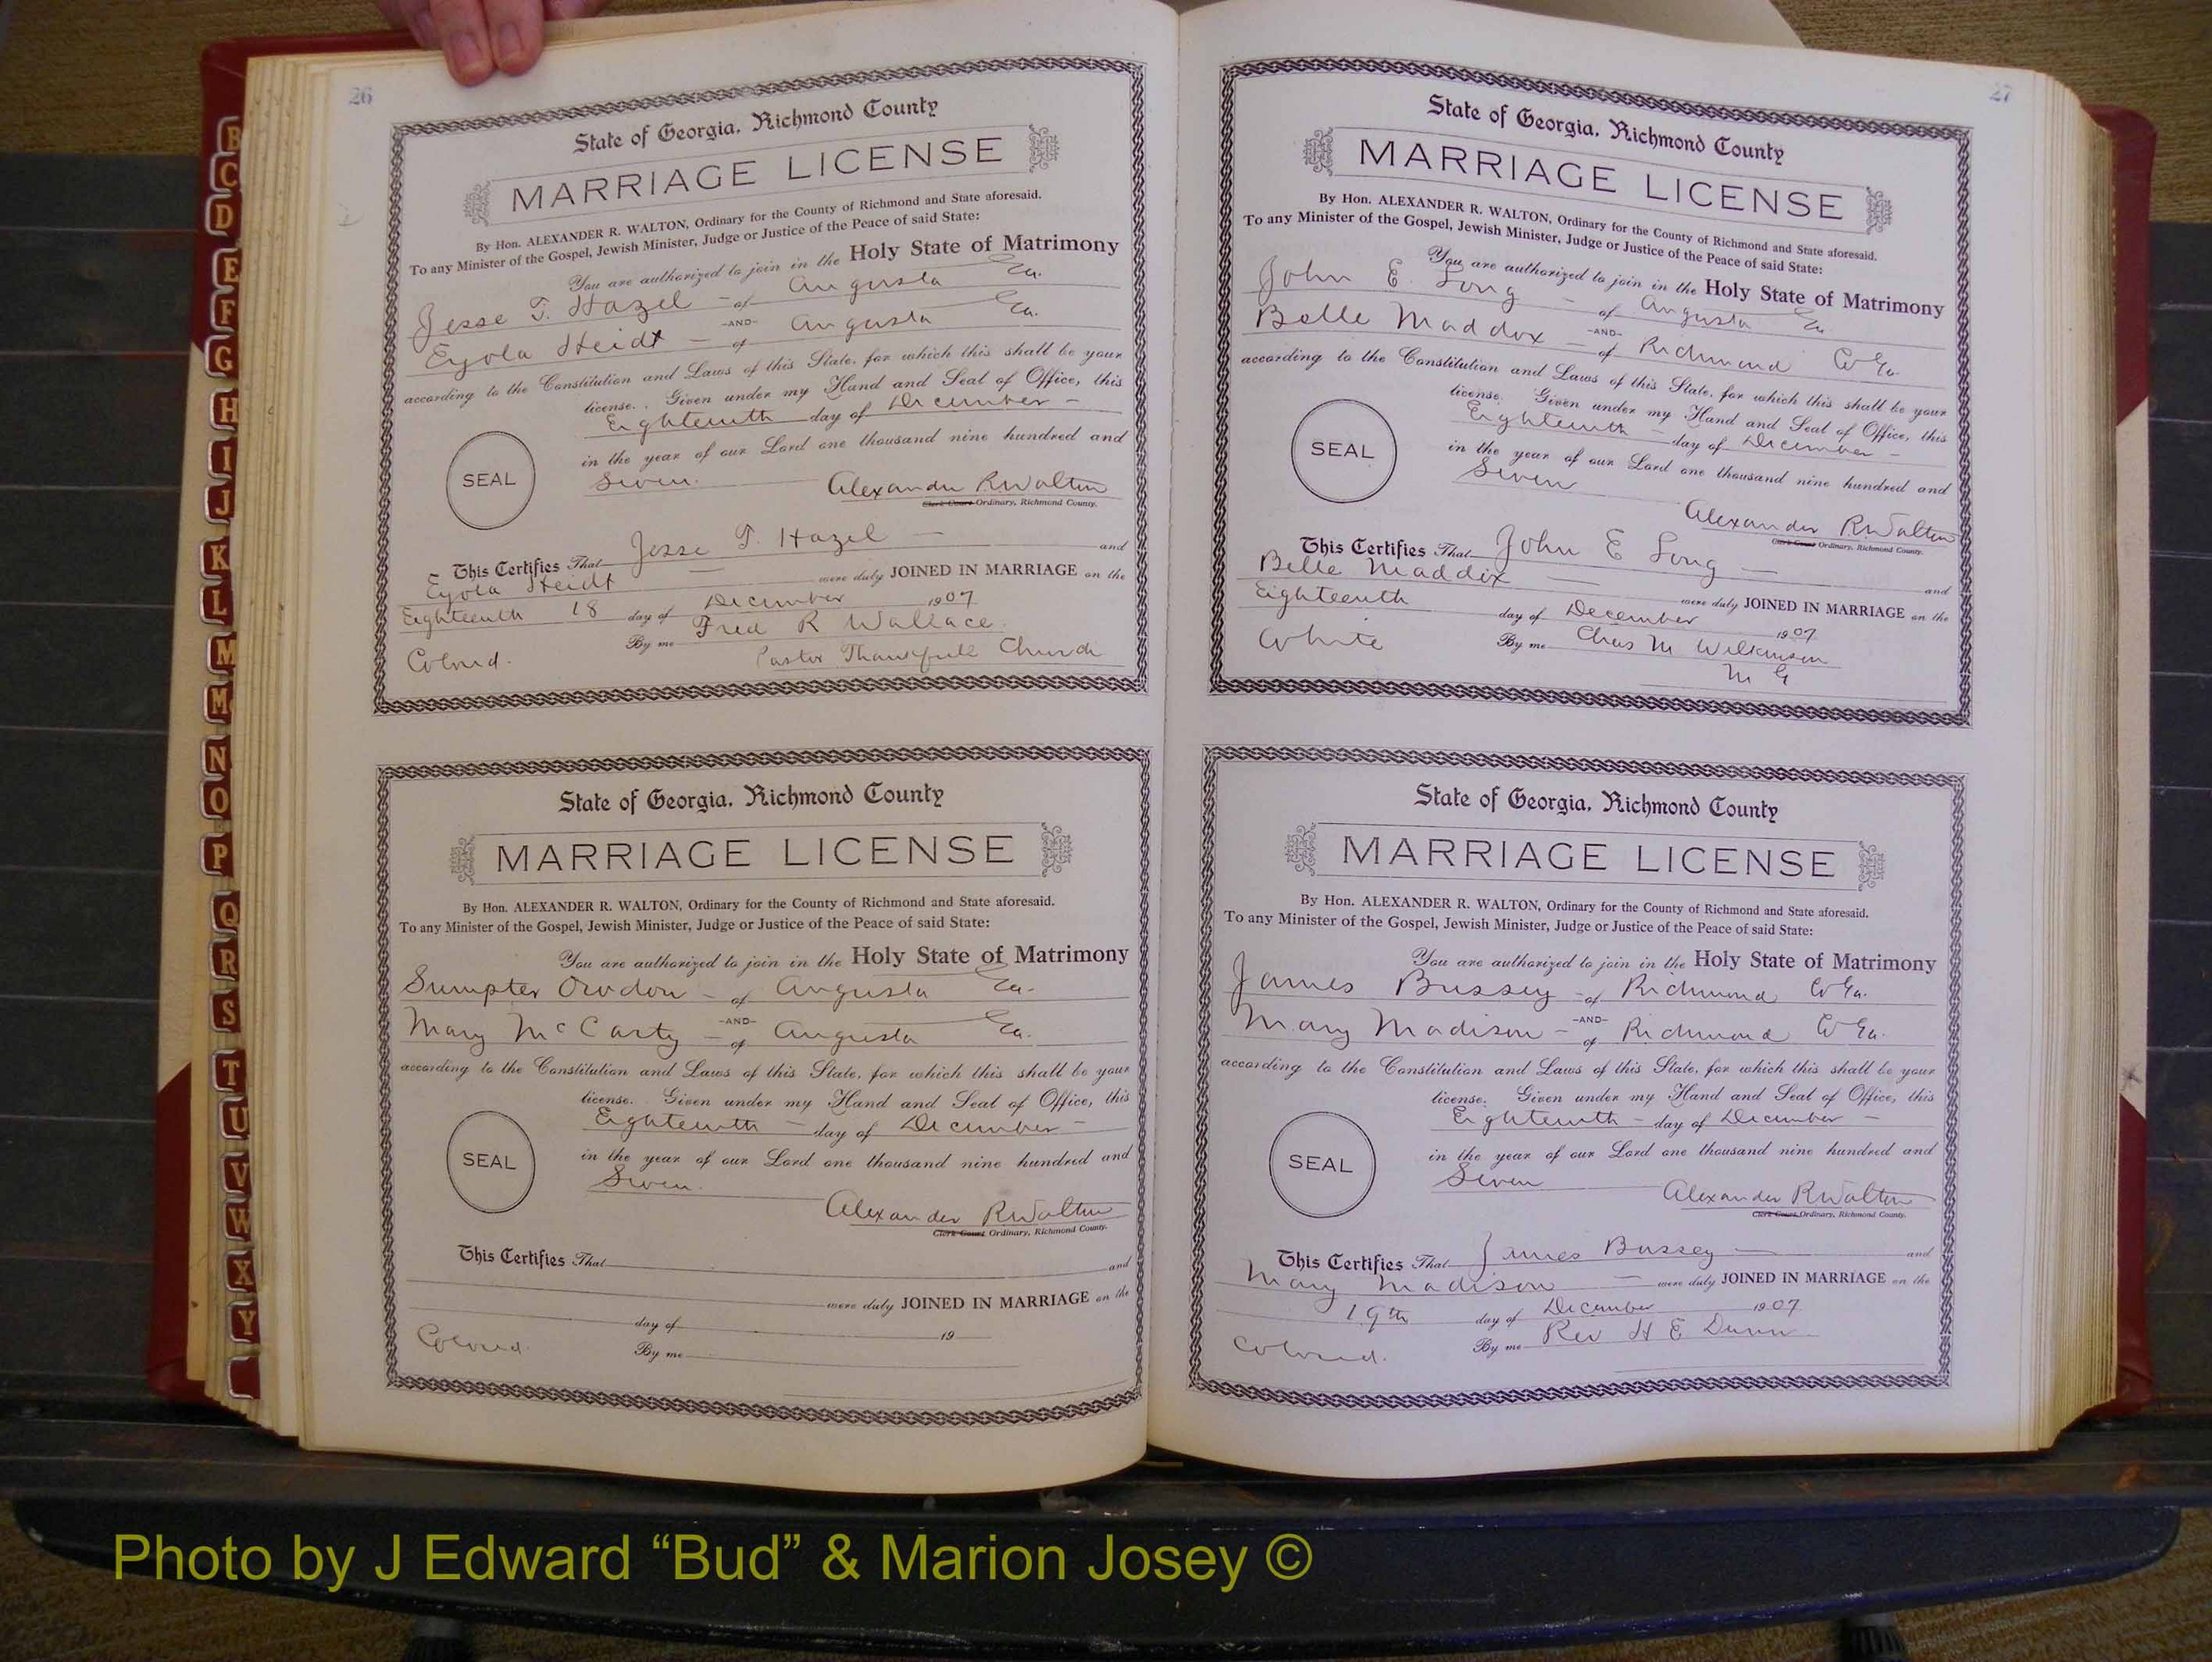 B
C
D
E
F
G
H
I
J
K
L
M
M
N
O
P
Q
R
S
T
U
V
W
X
Y
26
State of Georgia, Richmond County
MARRIAGE LICENSE
By Hon. ALEXANDER R. WALTON, Ordinary for the County of Richmond and State aforesaid.
To any Minister of the Gospel, Jewish Minister, Judge or Justice of the Peace of said State:
You are authorized to join in the Holy State of Matrimony
Jesse T. Hazel - of Augusta Ga.
-AND-
Eyola Heidt - of Augusta Ga.
according to the Constitution and Laws of this State, for which this shall be your
license. Given under my Hand and Seal of Office, this
Eighteenth day of December -
in the year of our Lord one thousand nine hundred and
Seven.
SEAL
Alexander R Walton
Clerk Court Ordinary, Richmond County.
This Certifies That Jesse T. Hazel - and
Eyola Heidt were duly JOINED IN MARRIAGE on the
Eighteenth 18 day of December 1907
By me Fred R Wallace
Colored. Pastor Thankfull Church
State of Georgia, Richmond County
MARRIAGE LICENSE
By Hon. ALEXANDER R. WALTON, Ordinary for the County of Richmond and State aforesaid.
To any Minister of the Gospel, Jewish Minister, Judge or Justice of the Peace of said State:
You are authorized to join in the Holy State of Matrimony
Sumpter - of Augusta Ga.
-AND-
Mary McCarty - of Augusta Ga.
according to the Constitution and Laws of this State, for which this shall be your
license. Given under my Hand and Seal of Office, this
Eighteenth - day of December -
in the year of our Lord one thousand nine hundred and
Seven.
SEAL
Alexander R Walton
Clerk Court Ordinary, Richmond County.
This Certifies That and
were duly JOINED IN MARRIAGE on the
day of 19
Colored. By me
27
State of Georgia, Richmond County
MARRIAGE LICENSE
By Hon. ALEXANDER R. WALTON, Ordinary for the County of Richmond and State aforesaid.
To any Minister of the Gospel, Jewish Minister, Judge or Justice of the Peace of said State:
You are authorized to join in the Holy State of Matrimony
John E. Long - of Augusta Ga
-AND-
Belle Maddox - of Richmond Co Ga.
according to the Constitution and Laws of this State, for which this shall be your
license. Given under my Hand and Seal of Office, this
Eighteenth - day of December -
in the year of our Lord one thousand nine hundred and
Seven
SEAL
Alexander R Walton
Clerk Court Ordinary, Richmond County.
This Certifies That John E Long - and
Belle Maddix - were duly JOINED IN MARRIAGE on the
Eighteenth day of December 1907
White By me Chas M Wilkinson
M G
State of Georgia, Richmond County
MARRIAGE LICENSE
By Hon. ALEXANDER R. WALTON, Ordinary for the County of Richmond and State aforesaid.
To any Minister of the Gospel, Jewish Minister, Judge or Justice of the Peace of said State:
You are authorized to join in the Holy State of Matrimony
James Bussey - of Richmond Co Ga.
-AND-
Mary Madison - of Richmond Co Ga.
according to the Constitution and Laws of this State, for which this shall be your
license. Given under my Hand and Seal of Office, this
Eighteenth - day of December -
in the year of our Lord one thousand nine hundred and
Seven
SEAL
Alexander R Walton
Clerk Court Ordinary, Richmond County.
This Certifies That James Bussey - and
Mary Madison - were duly JOINED IN MARRIAGE on the
19th day of December 1907
Colored. By me Rev H E Dunn
Photo by J Edward “Bud” & Marion Josey ©